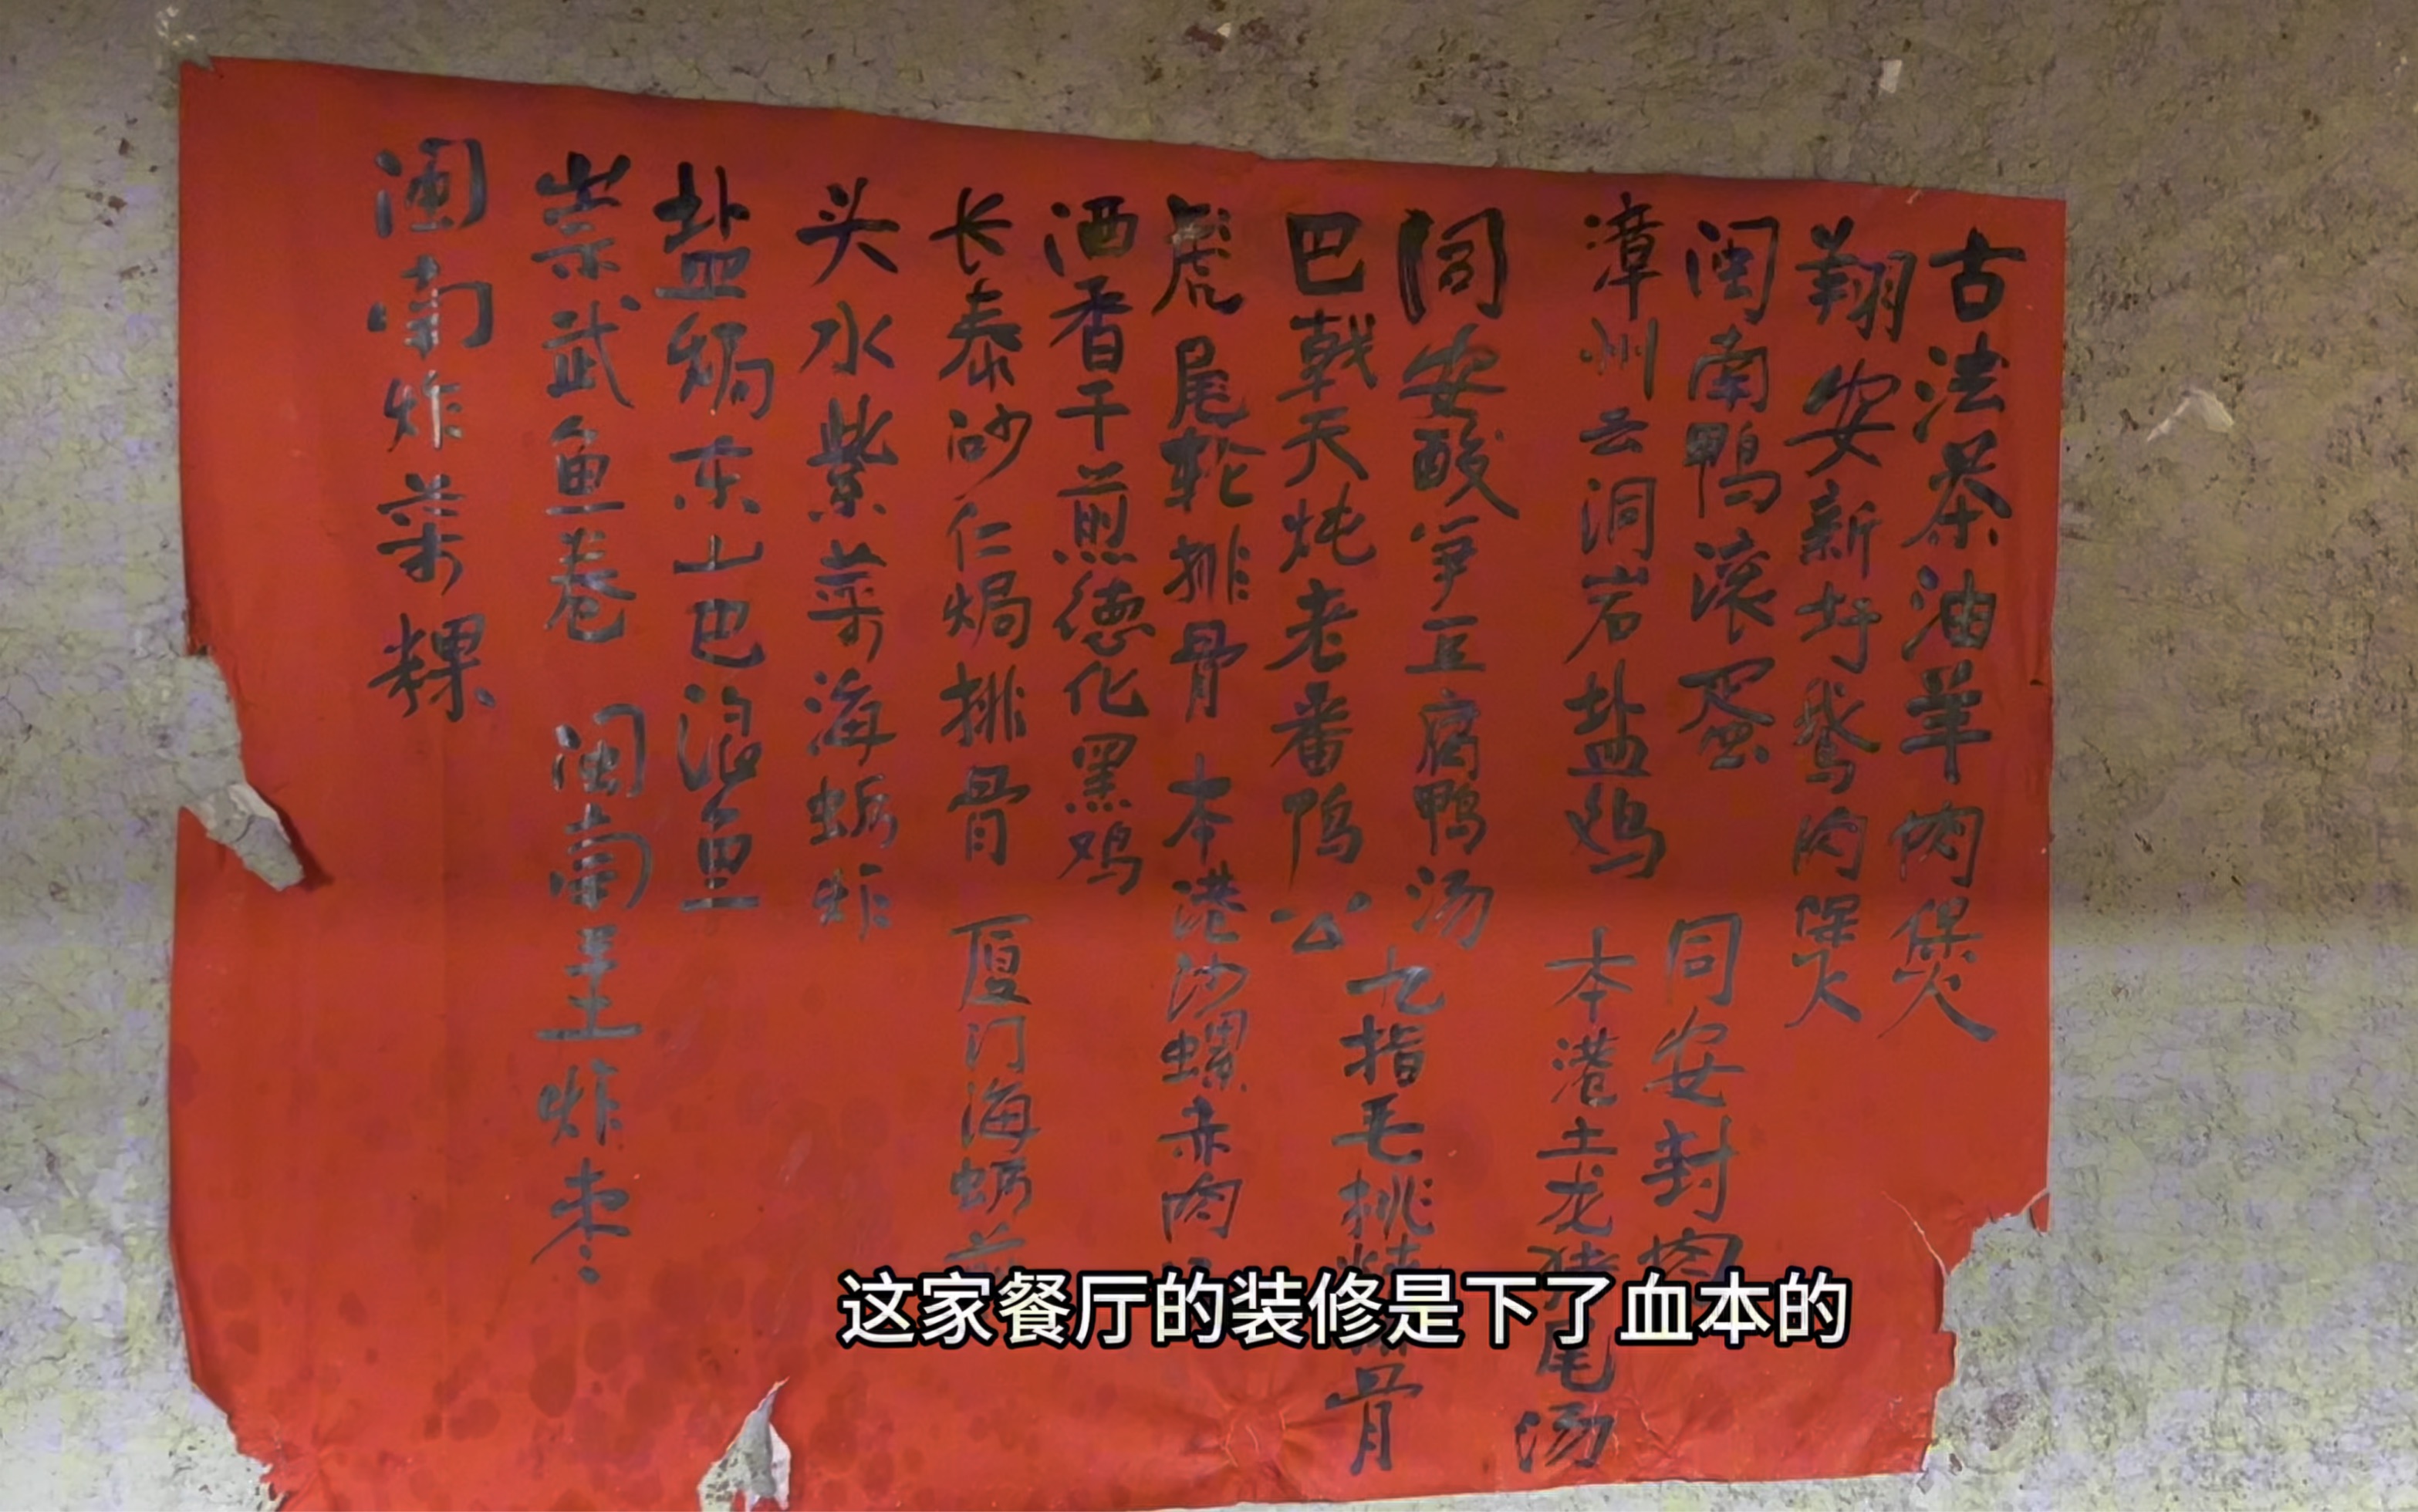 古法茶油羊肉煲
翔安新圩鹅肉煲
闽南鸭滚蛋 同安封肉
漳州云洞岩盐鸡 本港土龙猪尾汤
同安酸笋豆腐鸭汤 九指毛桃 骨
巴戟天炖老番鸭公
虎尾轮排骨 本港沙螺赤肉
酒香干煎德化黑鸡
长泰砂仁焗排骨 厦门海蛎煎
头水紫菜海蛎炸
盐焗东山巴浪鱼
崇武鱼卷 闽南 炸枣
闽南炸菜粿
这家餐厅的装修是下了血本的